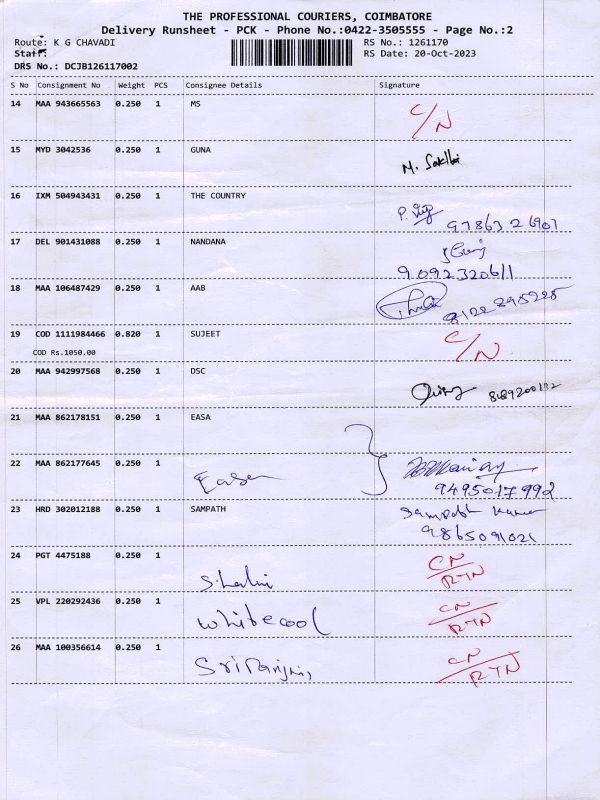 THE PROFESSIONAL COURIERS, COIMBATORE
Delivery Runsheet - PCK - Phone No.:0422-3505555 - Page No.:2
Route: K G CHAVADI RS No.: 1261170
Staff: RS Date: 20-Oct-2023
DRS No.: DCJB126117002
S No Consignment No Weight PCS Consignee Details Signature
14 MAA 943665563 0.250 1 MS C/N
15 MYD 3042536 0.250 1 GUNA
16 IXM 504943431 0.250 1 THE COUNTRY
97863 26901
17 DEL 901431088 0.250 1 NANDANA
9092320611
18 MAA 106487429 0.250 1 AAB
8122 295225
19 COD 1111984466 0.820 1 SUJEET C/N
COD Rs.1050.00
20 MAA 942997568 0.250 1 DSC
21 MAA 862178151 0.250 1 EASA
22 MAA 862177645 0.250 1 Easa
9495017992
23 HRD 302012188 0.250 1 SAMPATH Sampath Kumar
9865091021
24 PGT 4475188 0.250 1 Shalini CN/RTN
25 VPL 220292436 0.250 1 Whitecool CN/RTN
26 MAA 100356614 0.250 1 CN/RTN